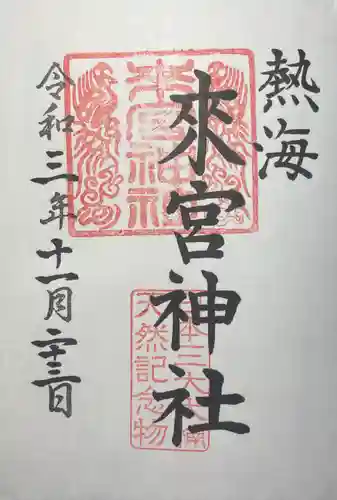 熱海
來宮神社
令和三年十一月二十三日
來宮神社
日本三大大楠
天然記念物